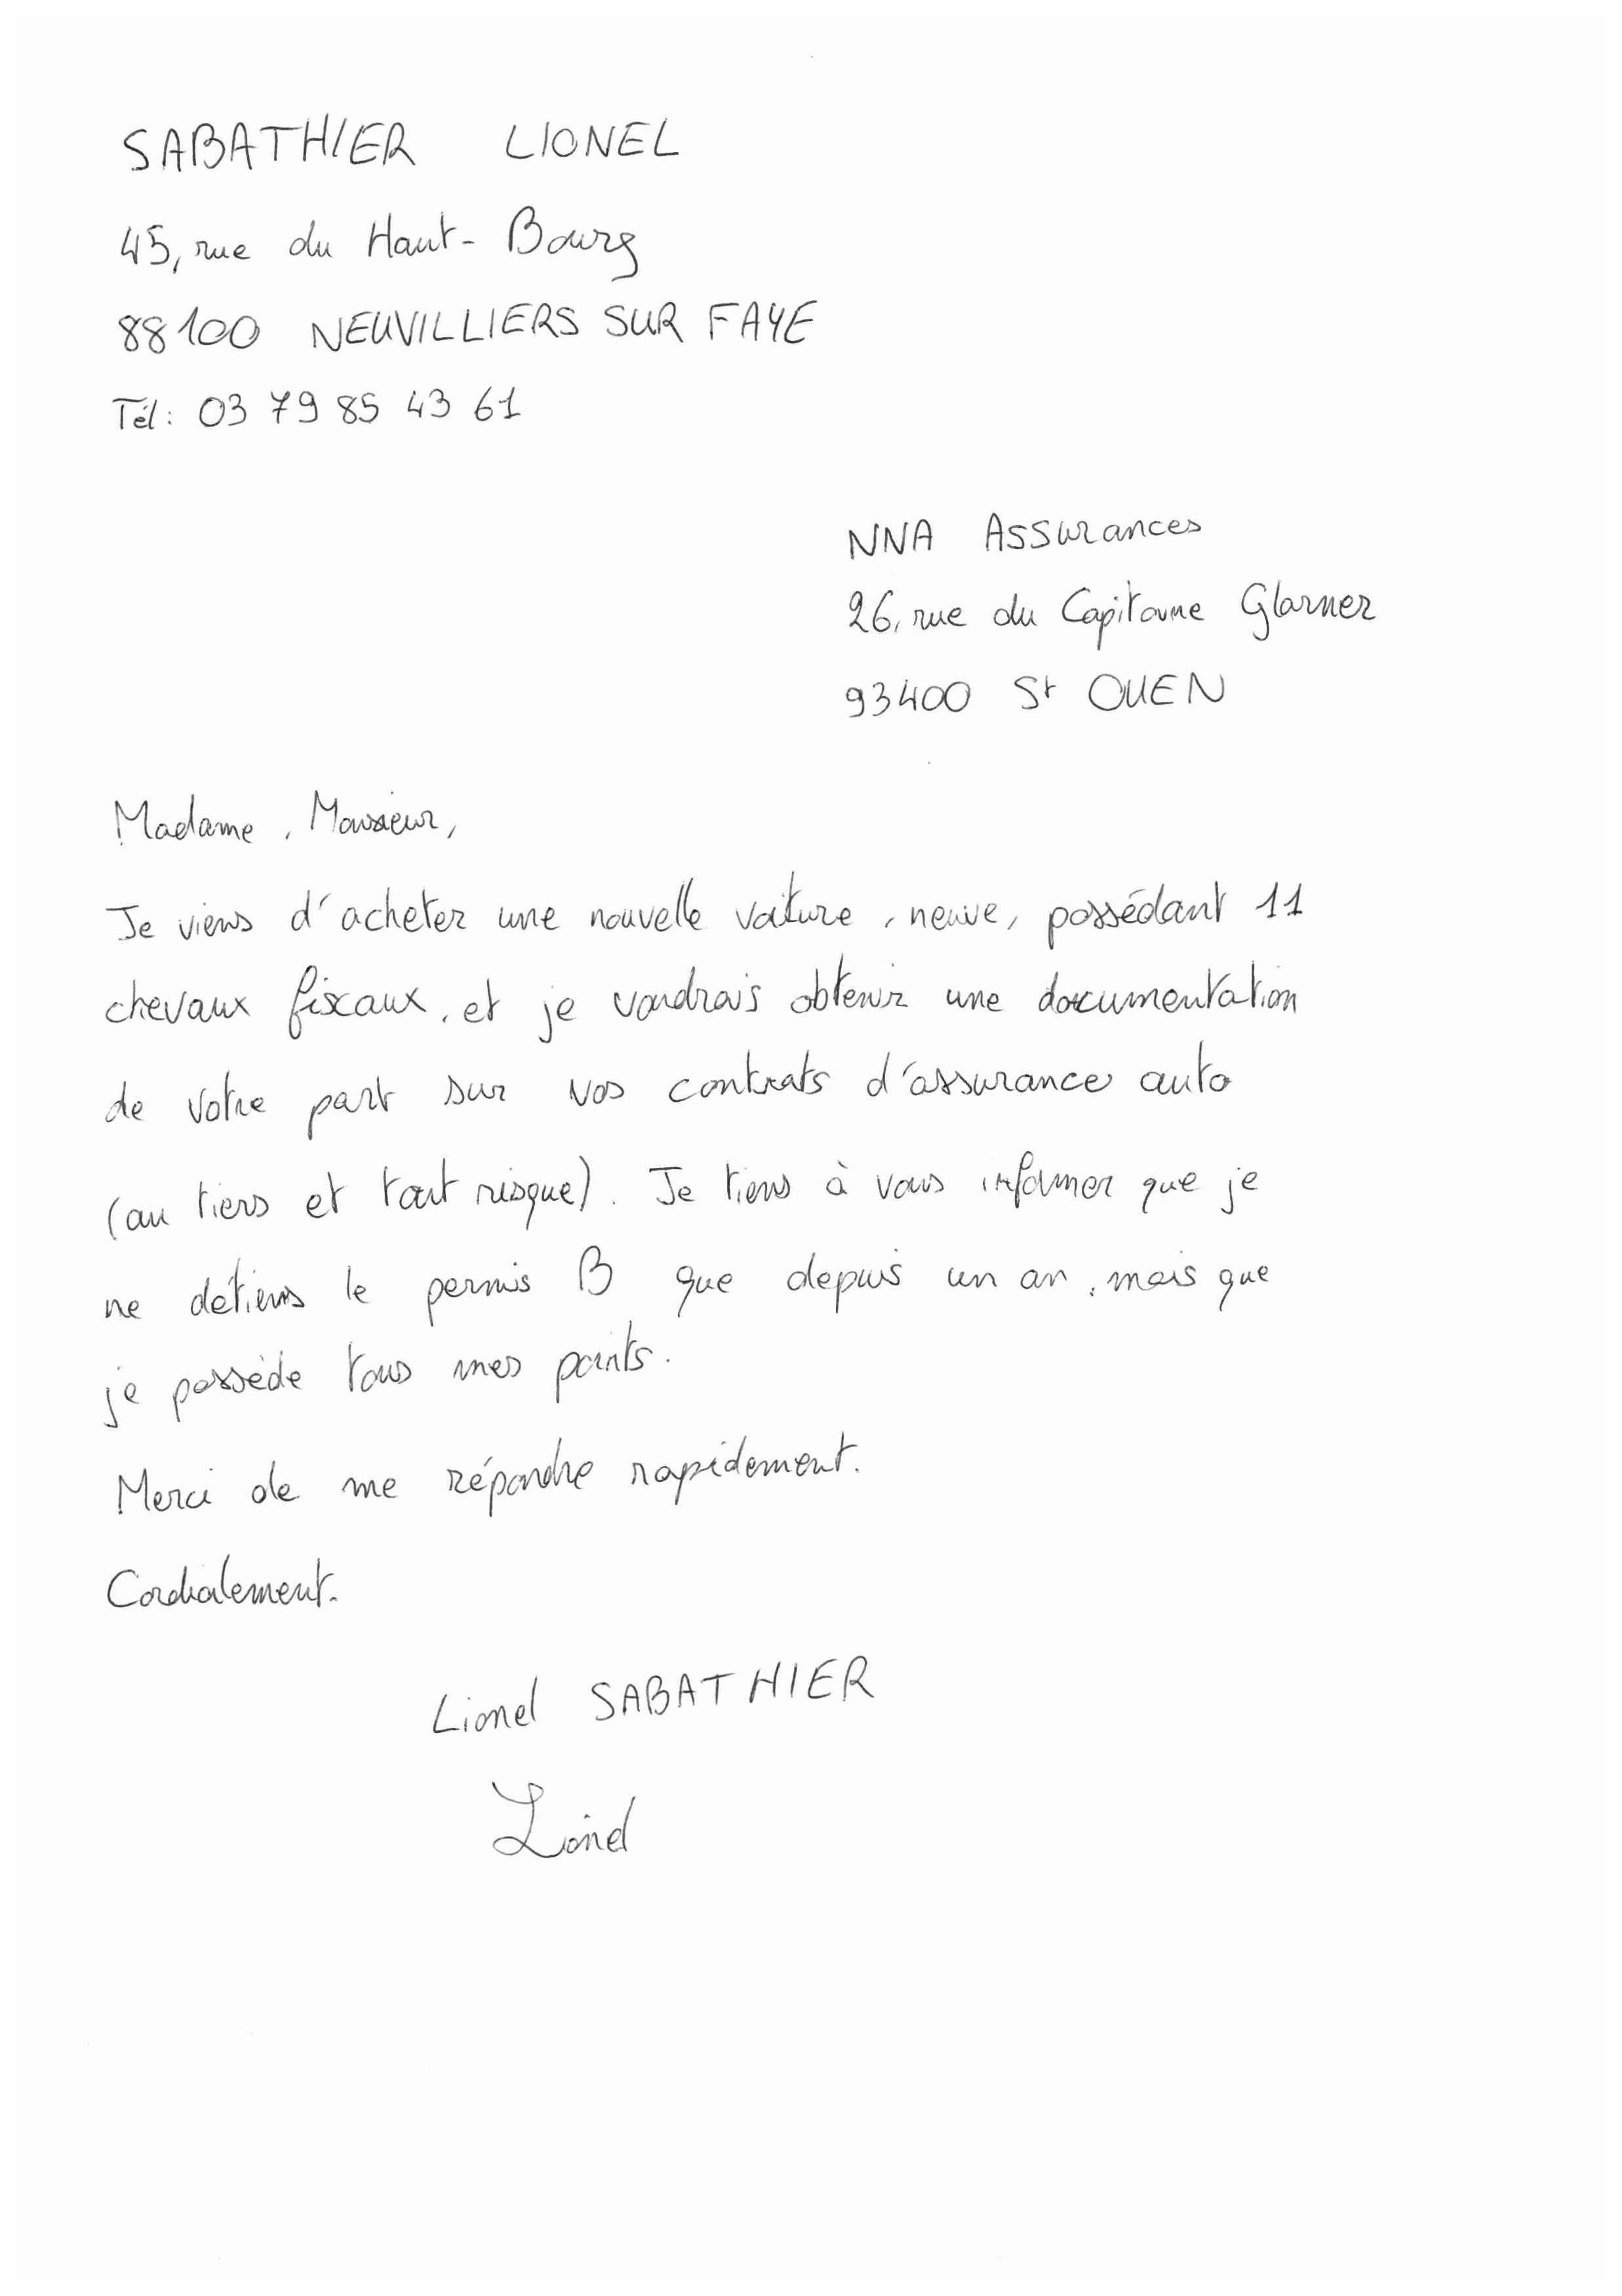 SABATHIER LIONEL
45, rue du Haut-Bourg
88100 NEUVILLIERS SUR FAYE
Tél: 03 79 85 43 61
NNA Assurances
26, rue du Capitaine Glarner
93400 St OUEN
Madame, Monsieur,
Je viens d'acheter une nouvelle voiture, neuve, possédant 11
chevaux fiscaux, et je voudrais obtenir une documentation
de votre part sur vos contrats d'assurance auto
(au tiers et tout risque). Je tiens à vous informer que je
ne détiens le permis B que depuis un an, mais que
je possède tous mes points.
Merci de me répondre rapidement.
Cordialement.
Lionel SABATHIER
Lionel